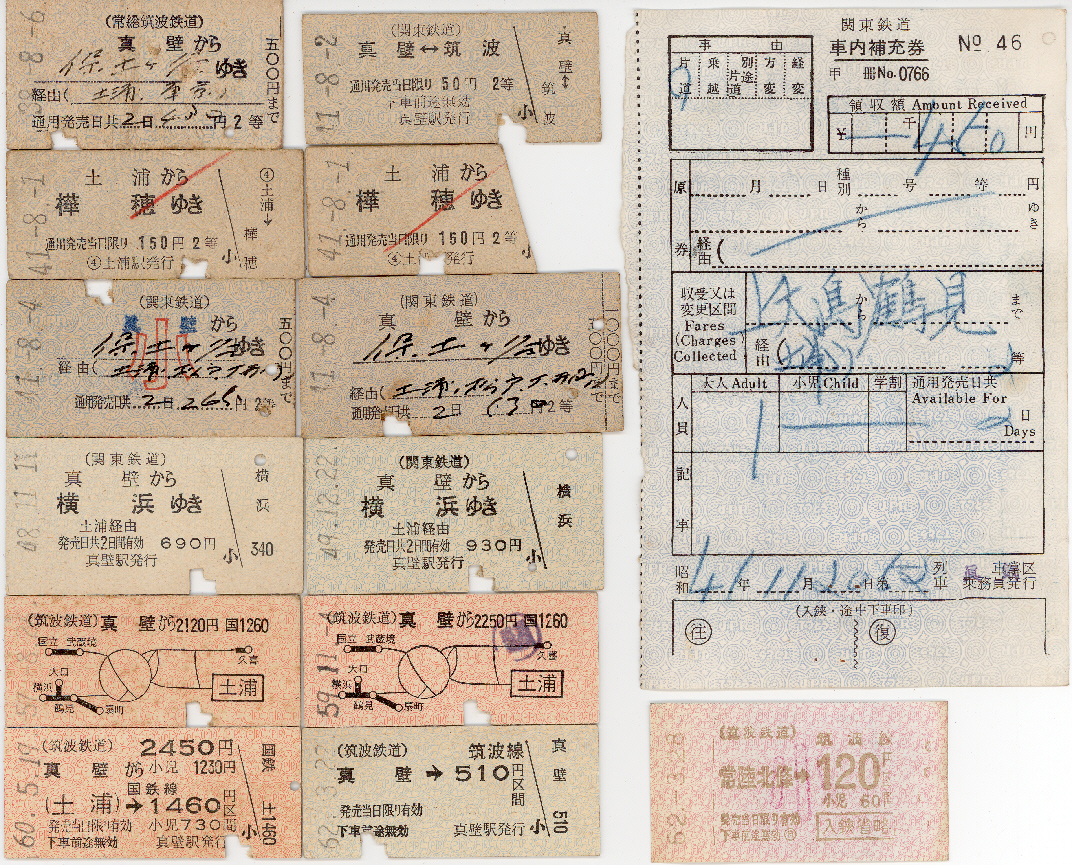 (常総筑波鉄道)
真壁から
保土ヶ谷ゆき
五〇〇円まで
経由(土浦.東京)
通用発売日共2日 円2等
41-8-2
(関東鉄道)
真壁↔筑波
通用発売当日限り 50円 2等
下車前途無効
真壁駅発行
小
真壁↔筑波
41-8-1
土浦から
樺穂ゆき
通用発売当日限り 150円 2等
④土浦駅発行
小
④土浦→樺穂
41-8-1
土浦から
樺穂ゆき
通用発売当日限り 150円 2等
④土浦駅発行
小
41-8-4
(関東鉄道)
真壁から
保土ヶ谷ゆき
小
五〇〇円まで
経由(土浦.
通用発売日共 2日 265円 2等
41-8-4
(関東鉄道)
真壁から
保土ヶ谷ゆき
円まで
経由(土浦.
通用発売日共 2日 円2等
48.11.11
(関東鉄道)
真壁から
横浜ゆき
土浦経由
発売日共2日間有効 690円
真壁駅発行
小
横浜
340
49.12.22
(関東鉄道)
真壁から
横浜ゆき
土浦経由
発売日共2日間有効 930円
真壁駅発行
小
横浜
(筑波鉄道) 真壁から 2120円 国1260
国立 武蔵境
久喜
大口
横浜
鶴見
扇町
土浦
59.11.-4
(筑波鉄道) 真壁から 2250円 国1260
国立 武蔵境
久喜
大口
横浜
鶴見
扇町
土浦
60.5.19
(筑波鉄道) 2450円
真壁から 小児 1230円
国鉄線
(土浦)→1460円区間
発売当日限り有効 小児730
下車前途無効 真壁駅発行
小
国鉄
土1460
62.3.23
(筑波鉄道) 筑波線
真壁→510円区間
発売当日限り有効
下車前途無効 真壁駅発行
小
真壁
510
関東鉄道
車内補充券 No 46
甲 冊No.0766
事由
片道
乗越
別途片道
方変
経変
領収額 Amount Received
¥ 千 460 円
原券
月 日 種別 号 等 円
から ゆき
経由(
収受又は
変更区間
Fares
(Charges
Collected
上大島から鶴見まで
経由(土浦) 2等
人員
大人Adult 小児Child 学割 通用発売日共
Available For
1
2日
Days
記事
昭和41年11月20日第 列車 車掌区
乗務員発行
(入鋏・途中下車印)
往 復
62.-3.28
(筑波鉄道) 筑波線
常陸北条→120円
小児 60円
発売当日限り有効
下車前途無効
入鋏省略